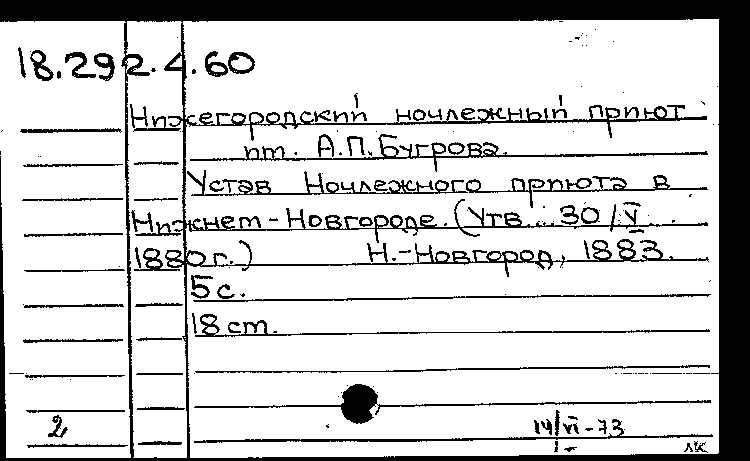 18.292.4.60
Нижегородский ночлежный приют
им. А.П. Бугрова.
Устав Ночлежного приюта в
Нижнем-Новгороде. (Утв. 30/V
1880 г.) Н.-Новгород, 1883.
5 с.
18 см.
2,
14/VI-73